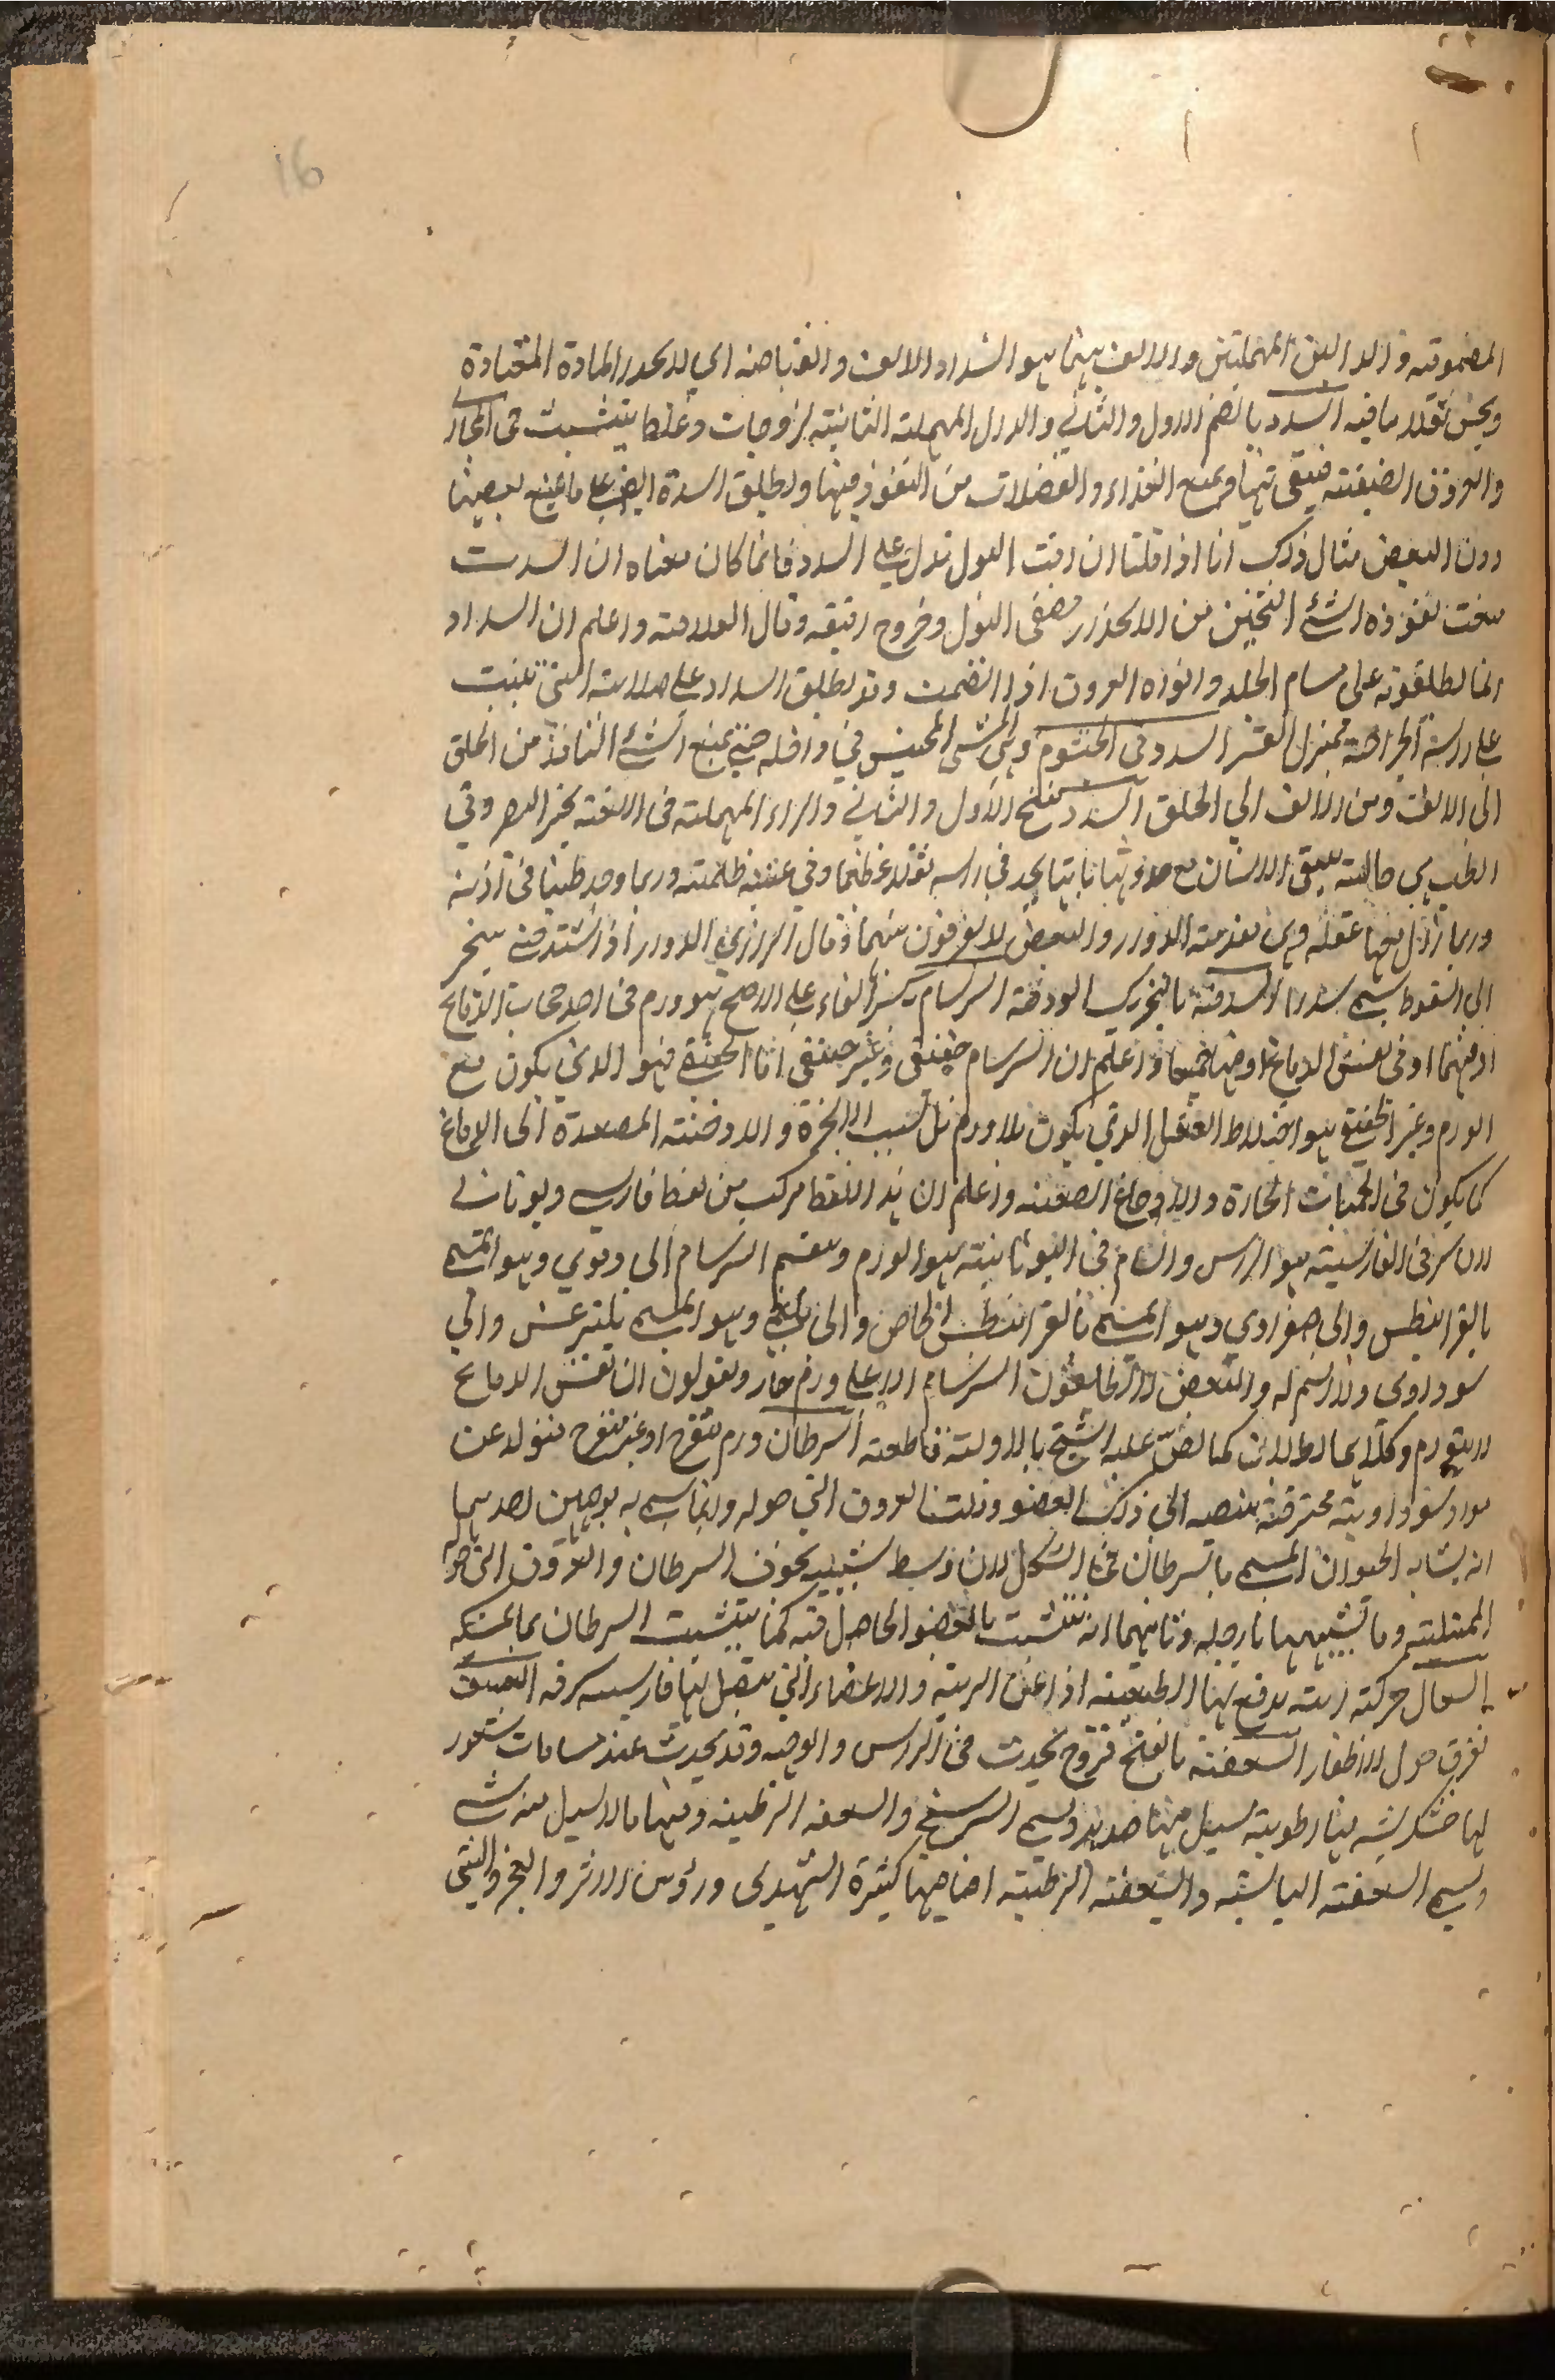 16
المضمومة والدالين المهملتين والالف بينهما هو انسداد الانف وانقباضه اي لا يحدر المادة المعتادة
ويحس ثقلا ما فيه السدد بالضم الاول والثاني والدال المهملة الثانية لزوجات وغلظ يتشبث في المجار
والعروق الضيقة فيبقى فيها ويمنع الغذاء والفضلات من النفوذ فيها ويطلق السدة ايضا على ما يمنع بعضها
دون البعض مثال ذلك انا اذا قلنا ان رقة البول تدل على السدد فانما كان معناه ان السدت
منعت نفوذه الشئ الثخين من الانحدار فصفى البول وخروج رقيقه وقال العلامة واعلم ان السداد
انما يطلقونه على مسام الجلد وافواه العروق اذا انضمت وقد يطلق السداد على صلابة التي تنبت
على راس الجراحة بمنزلة القشر السدد في الخيشوم وهي الشئ المحتبس في داخله حتى يمنع الشئ النافذ من الحلق
الى الانف ومن الانف الى الحلق السدر بفتح الاول والثاني والراء المهملة في اللغة تحير البصر وفي
الطب هي حالة يبقى الانسان مع حدوثها باهتا يجد في راسه ثقلا عظيما وفي عينيه ظلمة وربما وجد طنينا في اذنيه
وربما زال معها عقله وهي مقدمة الدوار والبعض لا يفرقون بينهما وقال الرازي الدوار اذا اشتد حتى ينجر
الى السقوط يسمى سدرا السدفة بالتحريك الودقة السرسام بكسر الفاء على الاصح هو ورم في احد حجاب الدماغ
او فيهما او في نفس الدماغ او فيها جميعا واعلم ان السرسام حقيقى وغير حقيقى اما الحقيقي فهو الذي يكون مع
الورم وغير الحقيقي هو اختلاط العقل الذي يكون بلا ورم بل بسبب الابخرة والادخنة المصعدة الى الدماغ
كما يكون في الحميات الحارة والاوجاع الصعبة واعلم ان هذا اللفظ مركب من لفظ فارسي ويوناني
لان سر في الفارسية هو الراس والسام في اليونانية هو الورم وينقسم السرسام الى دموي وهو المسمى
بالقرانيطس والى صفراوي وهو المسمى بالقرانيطس الخاص والى بلغمي وهو المسمى بليثرغس والى
سوداوى ولا اسم له والبعض لا يطلقون السرسام الا على ورم حار ويقولون ان نفس الدماغ
لا يتورم وكلا ايما باطلان كما نص عليه الشيخ بالادلة قاطعة السرطان ورم متقرح او غير متقرح متولد عن
مواد سوداوية محترقة منصبه الى ذلك العضو وامتلت العروق التي حوله وانما سمي به بوجهين احدهما
انه يشابه الحيوان المسمى بالسرطان في الشكل لان وسط شبيه بجوف السرطان والعروق التي حوله
الممتلئة وما تشبيهها بارجله وثانيهما انه تتشبث بالعضو الحاصل فيه كما يتشبث السرطان بما يمسكه
السعال حركة رية يدفع بها الطبيعة اذا عن الرية والاعضاء التي يتصل بها فارسيه سرفه السعف
تفرق حول الاظفار السعفة بالفتح قروح تحدث في الراس والوجه وقد يحدث عند مسامات شعور
لها خشكريشه فيها رطوبة يسيل منها صديد ويسمى الشيرينج والسعفه الرطبة ومنها ما لا يسيل منه شئ
ويسمى السعفة اليابسة والسعفة الرطبة اصنافها كثيرة الشهدى ورؤس الابر والعجز والتينى